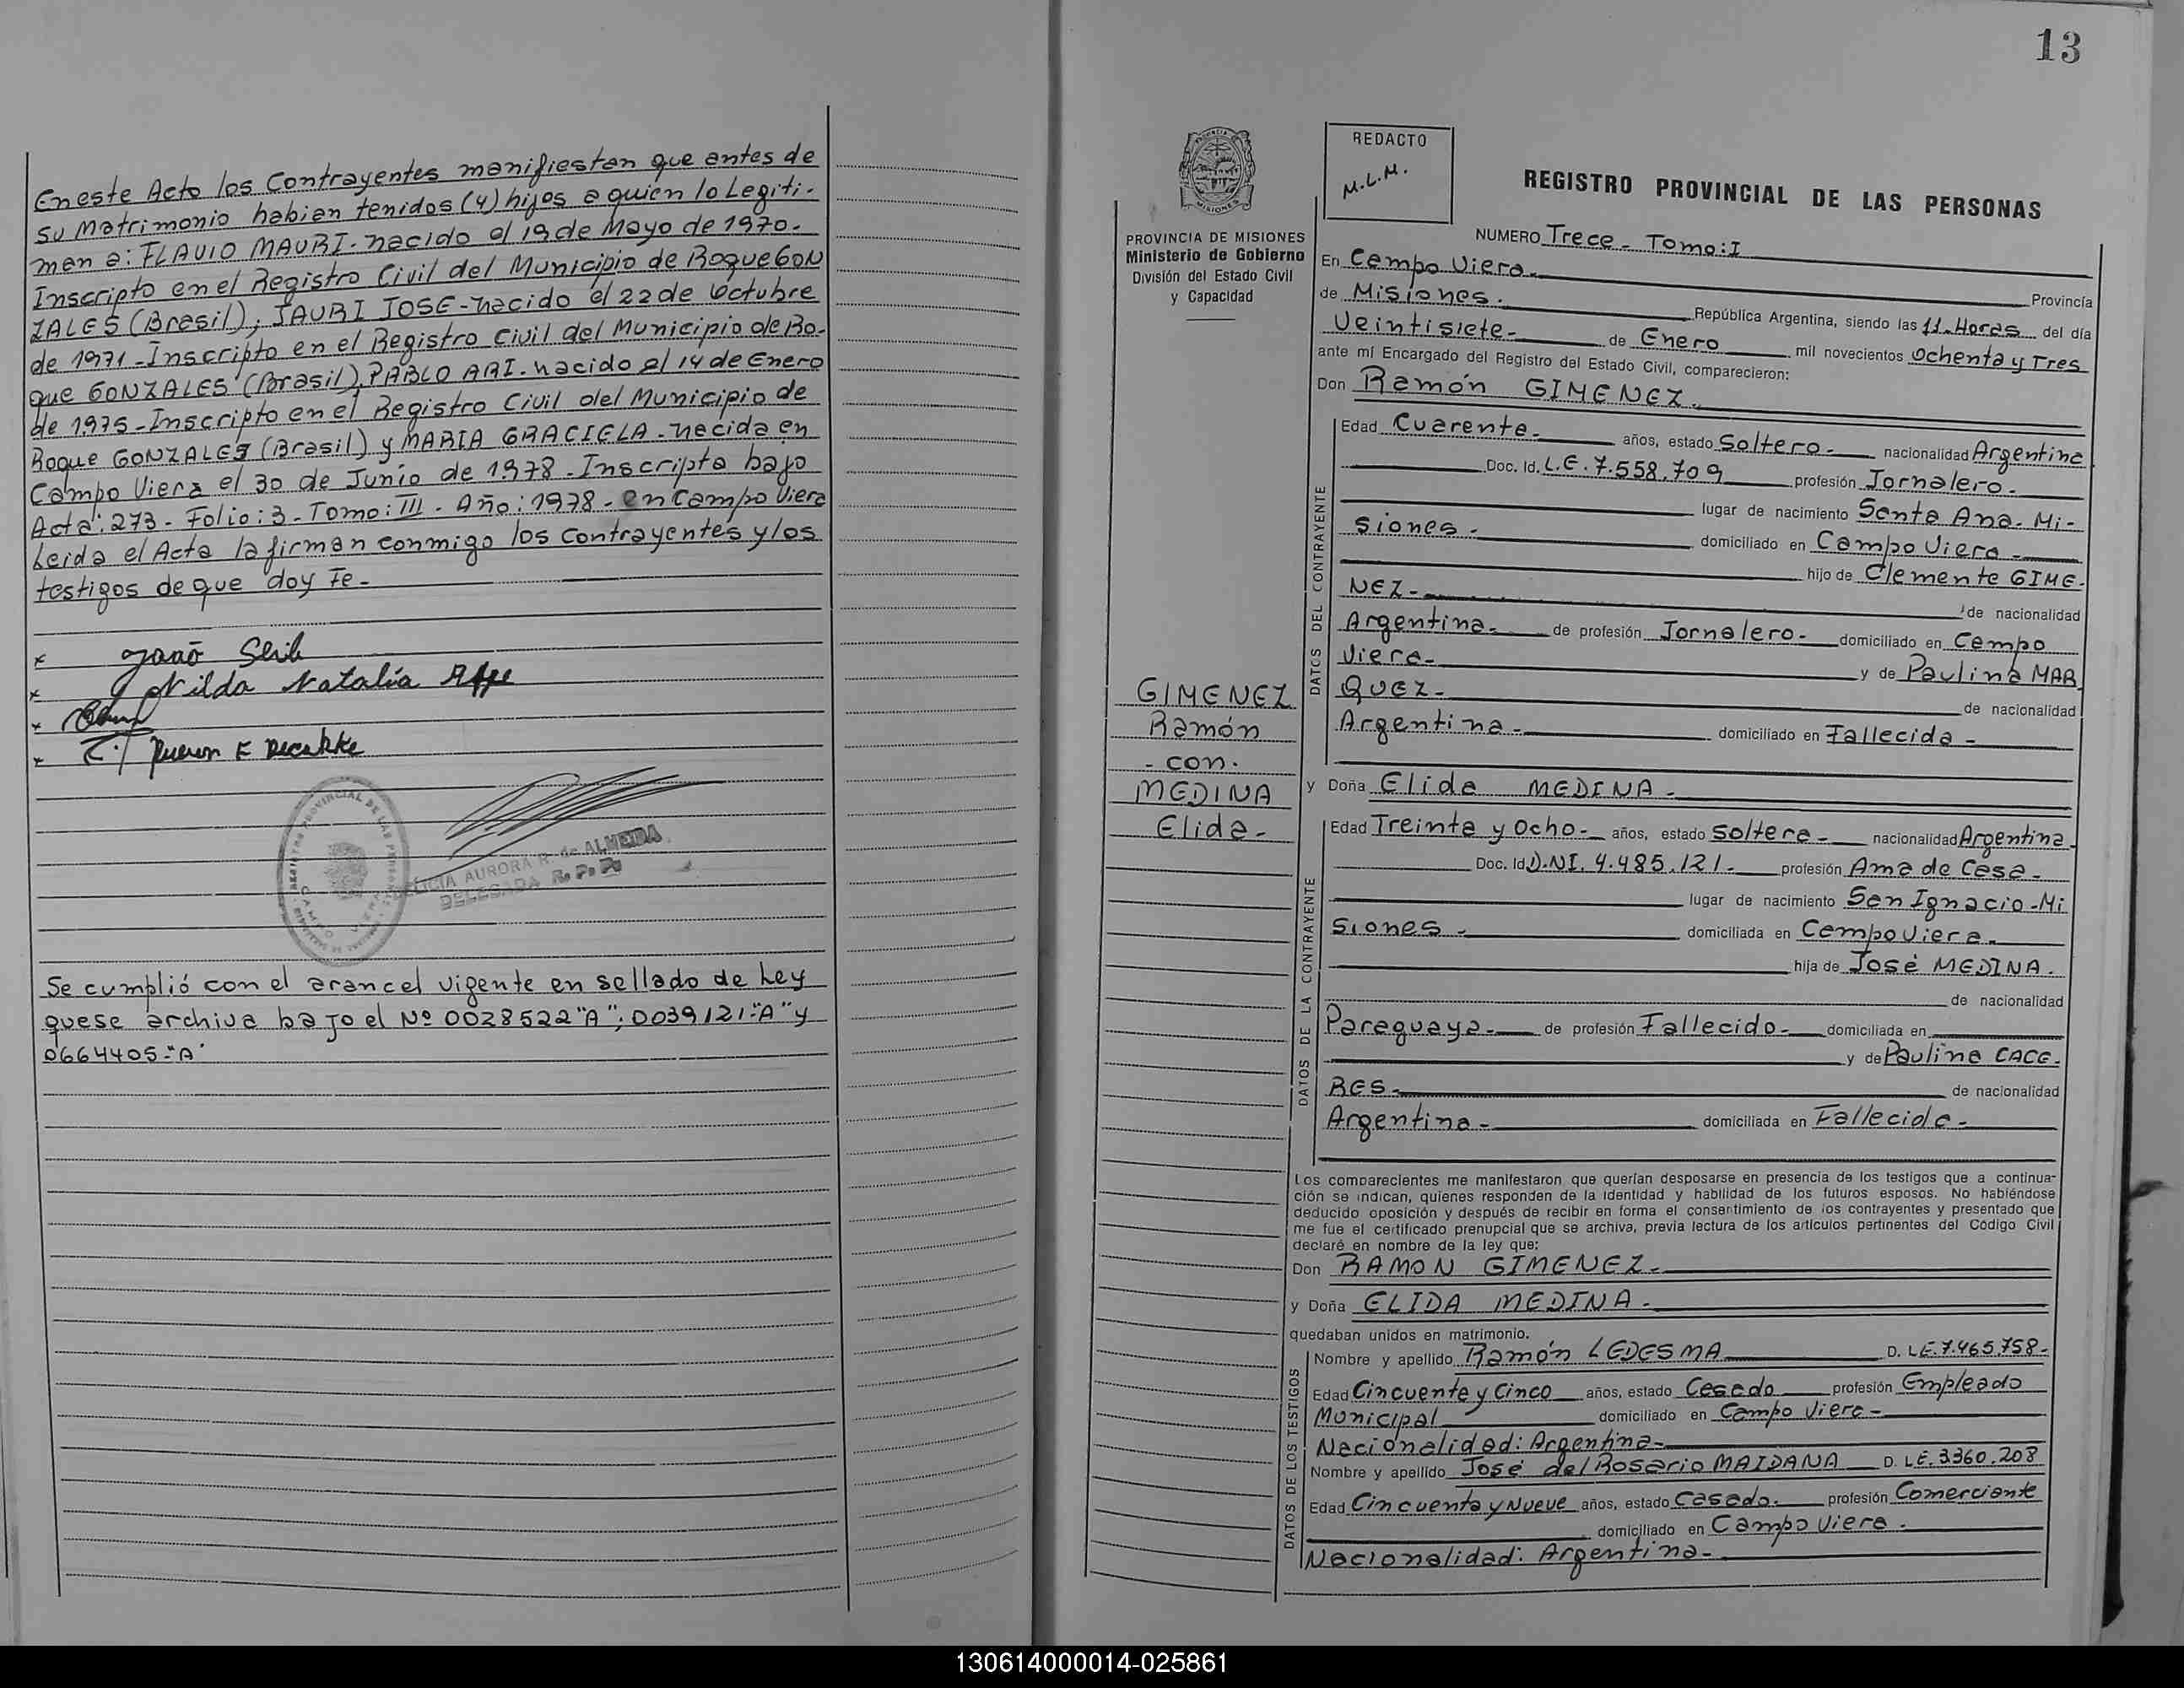 En este Acto los Contrayentes manifiestan que antes de
su Matrimonio habian tenidos (4) hijos a quien lo Legiti-
man a: FLAVIO MAURI- nacido el 19 de Mayo de 1970-
Inscripto en el Registro Civil del Municipio de Roque GON
ZALES (Brasil); JAURI JOSE- nacido el 22 de Octubre
de 1971- Inscripto en el Registro Civil del Municipio de Ro-
que GONZALES (Brasil), PABLO ARI- nacido el 14 de Enero
de 1975- Inscripto en el Registro Civil del Municipio de
Roque GONZALES (Brasil) y MARIA GRACIELA- nacida en
Campo Viera el 30 de Junio de 1978- Inscripta bajo
Acta: 273- Folio: 3- Tomo: III- Año: 1978- en Campo Viera
Leida el Acta la firman conmigo los contrayentes y los
testigos de que doy Fe-
x João Seib
x Nilda Natalia
x
x
REGISTRO PROVINCIAL DE LAS PERSONAS
AURORA R. de ALMEIDA
DELEGADA R. P. P.
Se cumplió con el arancel vigente en sellado de Ley
que se archiva bajo el Nº 0028522 "A"; 0039121-"A" y
0664405-"A"
13
PROVINCIA DE MISIONES
Ministerio de Gobierno
División del Estado Civil
y Capacidad
REDACTO
M.L.M.
REGISTRO PROVINCIAL DE LAS PERSONAS
NUMERO Trece- Tomo: I
En Campo Viera- Provincia
de Misiones. República Argentina, siendo las 11-Horas del día
Veintisiete- de Enero mil novecientos Ochenta y Tres
ante mí Encargado del Registro del Estado Civil, comparecieron:
Don Ramón GIMENEZ-
DATOS DEL CONTRAYENTE
Edad Cuarenta- años, estado Soltero- nacionalidad Argentina
Doc. Id. L.E. 7.558.709 profesión Jornalero-
lugar de nacimiento Santa Ana- Mi-
siones- domiciliado en Campo Viera-
hijo de Clemente GIME-
NEZ- de nacionalidad
Argentina- de profesión Jornalero- domiciliado en Campo
Viera- y de Paulina MAR
QUEZ- de nacionalidad
Argentina- domiciliado en Fallecida-
GIMENEZ
Ramón
- con-
MEDINA
Elida-
y Doña Elida MEDINA-
DATOS DE LA CONTRAYENTE
Edad Treinta y Ocho- años, estado Soltera- nacionalidad Argentina
Doc. Id D.N.I. 4.485.121- profesión Ama de Casa-
lugar de nacimiento San Ignacio-Mi
siones- domiciliada en Campo Viera-
hija de José MEDINA.
de nacionalidad
Paraguaya- de profesión Fallecido- domiciliada en
y de Paulina CACE-
RES- de nacionalidad
Argentina- domiciliada en Fallecida-
Los comparecientes me manifestaron que querían desposarse en presencia de los testigos que a continua-
ción se indican, quienes responden de la identidad y habilidad de los futuros esposos. No habiéndose
deducido oposición y después de recibir en forma el consentimiento de los contrayentes y presentado que
me fue el certificado prenupcial que se archiva, previa lectura de los artículos pertinentes del Código Civil
declaré en nombre de la ley que:
Don RAMON GIMENEZ-
y Doña ELIDA MEDINA-
quedaban unidos en matrimonio.
DATOS DE LOS TESTIGOS
Nombre y apellido Ramón LEDESMA D. LE. 7.465.758-
Edad Cincuenta y Cinco años, estado Casado profesión Empleado
Municipal domiciliado en Campo Viera-
Nacionalidad: Argentina-
Nombre y apellido José del Rosario MAIDANA D. LE. 3360.208
Edad Cincuenta y Nueve años, estado Casado- profesión Comerciante
domiciliado en Campo Viera-
Nacionalidad: Argentina-
130614000014-025861